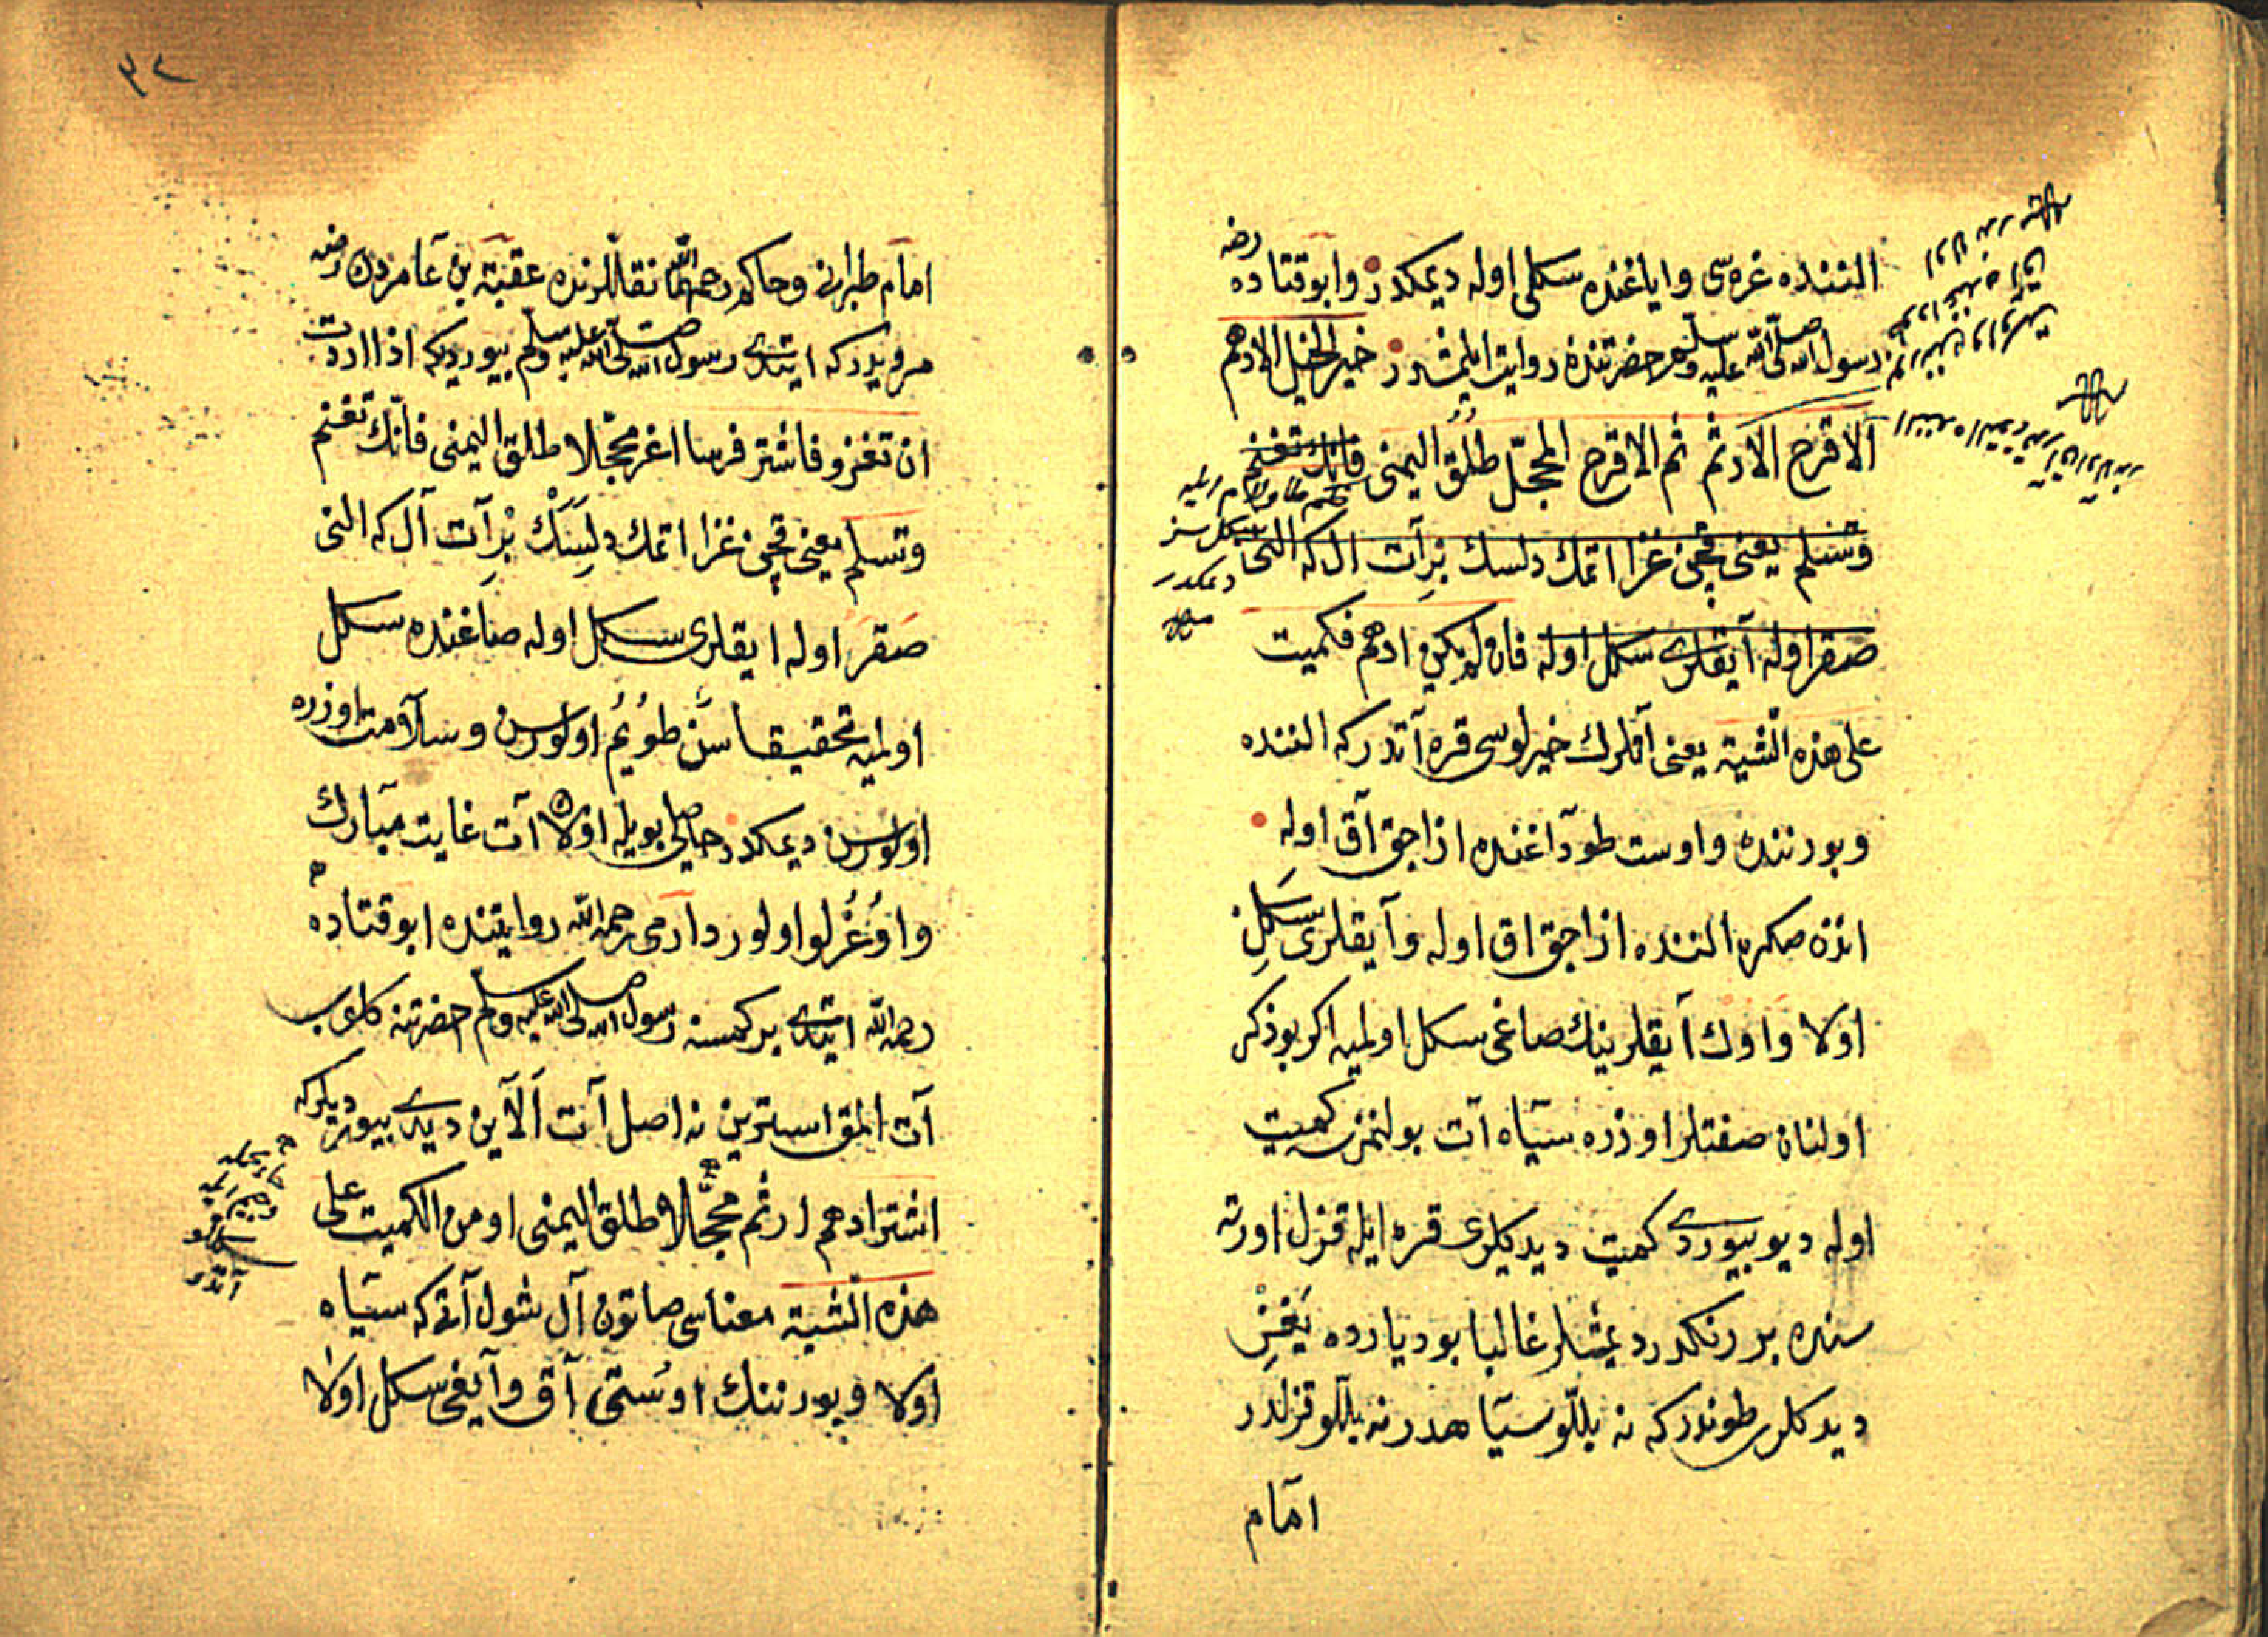 الننده غره‌سی و اياغنده سكلی اوله ديمكدر و ابو قتاده رضه
رسول الله صلی الله عليه وسلم حضرتندن روايت ايلمشدر خير الخيل الادهم
الاقرح الارثم ثم الاقرح المحجّل طلق اليمنی فانك تغنم
وتسلم يعنی قچن غزا اتمك دلسك بر آت ال كه النی
صقر اوله آيقلری سكل اوله فان لم يكن ادهم فكميت
علی هذه الشية يعنی آتلرك خيرلوسی قره آتدر كه الننده
و بورننده و اوست طوداغنده ازاجق آق اوله
اندن صكره الننده ازاجق اق اوله و آيقلری سكل
اولا و اوك آيقلرينك صاغی سكل اولميه اكر بو ذكر
اولنان صفتلر اوزره سياه آت بولنمزسه كميت
اوله ديو بيوردی كميت ديدكلری قره ايله قزل اورته
سنده بر رنكدر ديمشلر غالبا بو ديارده يغز
ديدكلری طوندر كه نه بللو سياهدر نه بللو قزلدر
امام
٣٢
امام طبرانی و حاكم رحمهما الله نقللرنده عقبة بن عامردن رضه
مرويدر كه ايتدی رسول الله صلی الله عليه وسلم بيورديكه اذا اردت
ان تغزو فاشتر فرسا اغر محجّلا طلق اليمنی فانّك تغنم
وتسلم يعنی قچن غزا اتمك دلسك بر آت آل كه النی
صقر اوله ايقلری سكل اوله صاغنده سكل
اولميه تحقيقا سن طويم اولورسن و سلامت اوزره
اولورسن ديمكدر حاصلی بويله اولان آت غايت مبارك
و اوغرلو اولور دارمی رحمه الله روايتنده ابو قتاده
رحمه الله ايتدی بر كمسنه رسول الله صلی الله عليه وسلم حضرتنه كلوب
آت المق استرين نه اصل آت آلاين ديدی بيورديلر كه
اشتر ادهم ارثم محجلا طلق اليمنی او من الكميت علی
هذه الشية معناسی صاتون آل شول آتی كه سياه
اولا و بورننك اوستی آق و آيغی سكل اولا